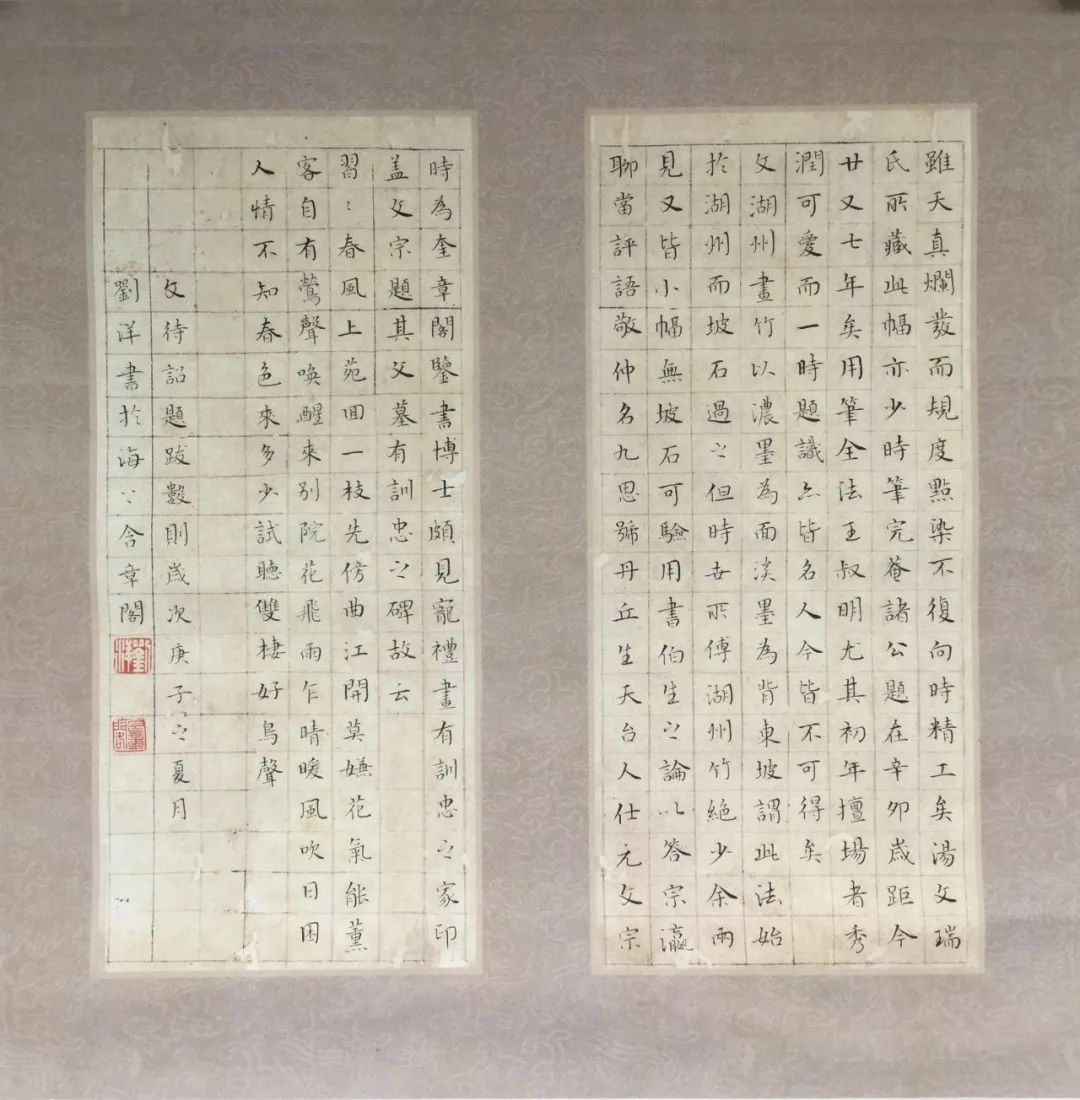 雖天真爛發而規度點染不復向時精工矣湯文瑞
氏所藏此幅亦少時筆完菴諸公題在辛卯歲距今
廿又七年矣用筆全法王叔明尤其初年擅場者秀
潤可愛而一時題識亦皆名人今皆不可得矣
文湖州畫竹以濃墨為面淡墨為背東坡謂此法始
於湖州而坡石過之但時世所傳湖州竹絶少余兩
見又皆小幅無坡石可驗用書伯生之論以答宗瀛
聊當評語敬仲名九思號丹丘生天台人仕元文宗
時為奎章閣鑒書博士頗見寵禮畫有訓忠之家印
盖文宗題其父墓有訓忠之碑故云
習〻春風上苑回一枝先傍曲江開莫嫌花氣能薰
客自有鶯聲喚醒來別院花飛雨乍晴暖風吹日困
人情不知春色來多少試聽雙棲好鳥聲
文待詔題跋數則歲次庚子之夏月
劉洋書於海上含章閣